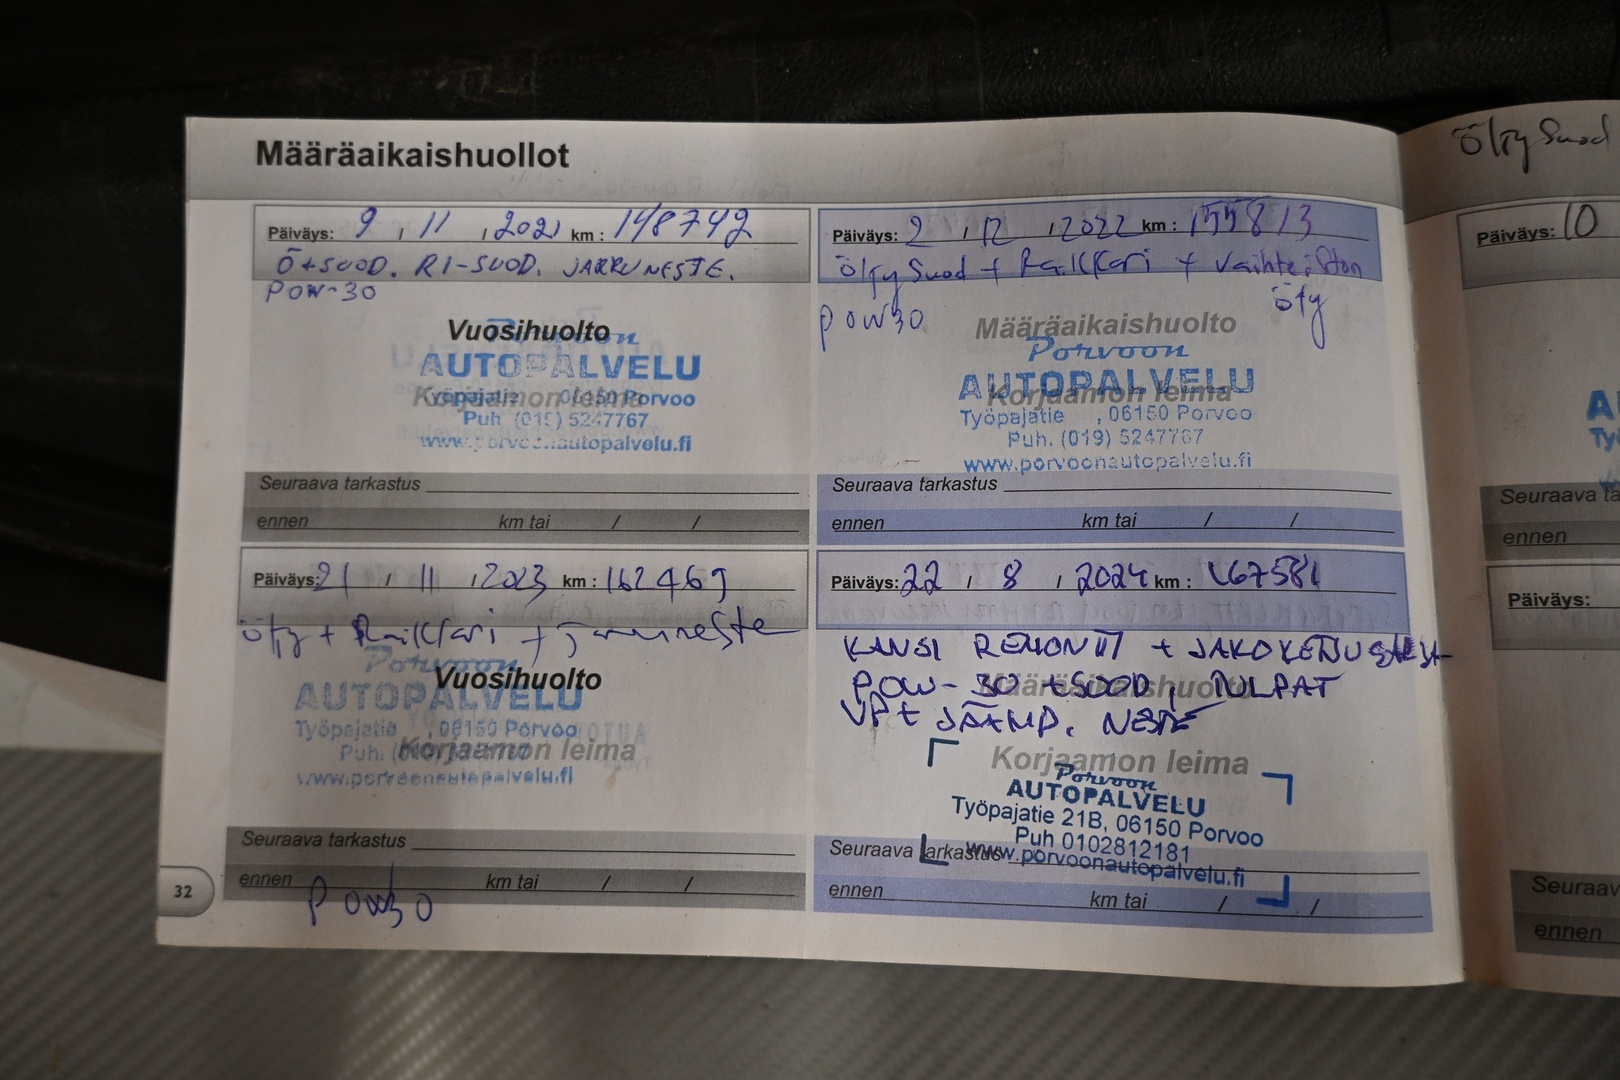 Määräaikaishuollot
Päiväys: 9 / 11 / 2021 km : 148742
Ö+SUOD. RI-SUOD. JARRUNESTE.
POW-30
Vuosihuolto
Porvoon
AUTOPALVELU
Korjaamon leima
Työpajatie 06150 Porvoo
Puh (015) 5247767
www.porvoonautopalvelu.fi
Seuraava tarkastus
ennen km tai / /
Päiväys: 2 / 12 / 2022 km : 155813
öljy Suod + Raikkari + Vaihteiston
öljy
POW30
Määräaikaishuolto
Porvoon
AUTOPALVELU
Korjaamon leima
Työpajatie , 06150 Porvoo
Puh. (019) 5247767
www.porvoonautopalvelu.fi
Seuraava tarkastus
ennen km tai / /
Päiväys: 21 / 11 / 2023 km : 162469
öljy + Raikkari + Jarruneste
Porvoon
Vuosihuolto
AUTOPALVELU
Työpajatie , 06150 Porvoo
Puh.
Korjaamon leima
www.porvoonautopalvelu.fi
Seuraava tarkastus
ennen km tai / /
POW30
32
Päiväys: 22 / 8 / 2024 km : 167581
KANSI REMONTTI + JAKOKETJU
POW-30 +SUOD, TULPAT
Määräaikaishuolto
VP+ JÄÄHD. NESTE
Korjaamon leima
Porvoon
AUTOPALVELU
Työpajatie 21B, 06150 Porvoo
Puh 0102812181
www.porvoonautopalvelu.fi
Seuraava tarkastus
ennen km tai / /
Öljy Suod
Päiväys: 10
A
Ty
Seuraava ta
ennen
Päiväys:
Seuraav
ennen